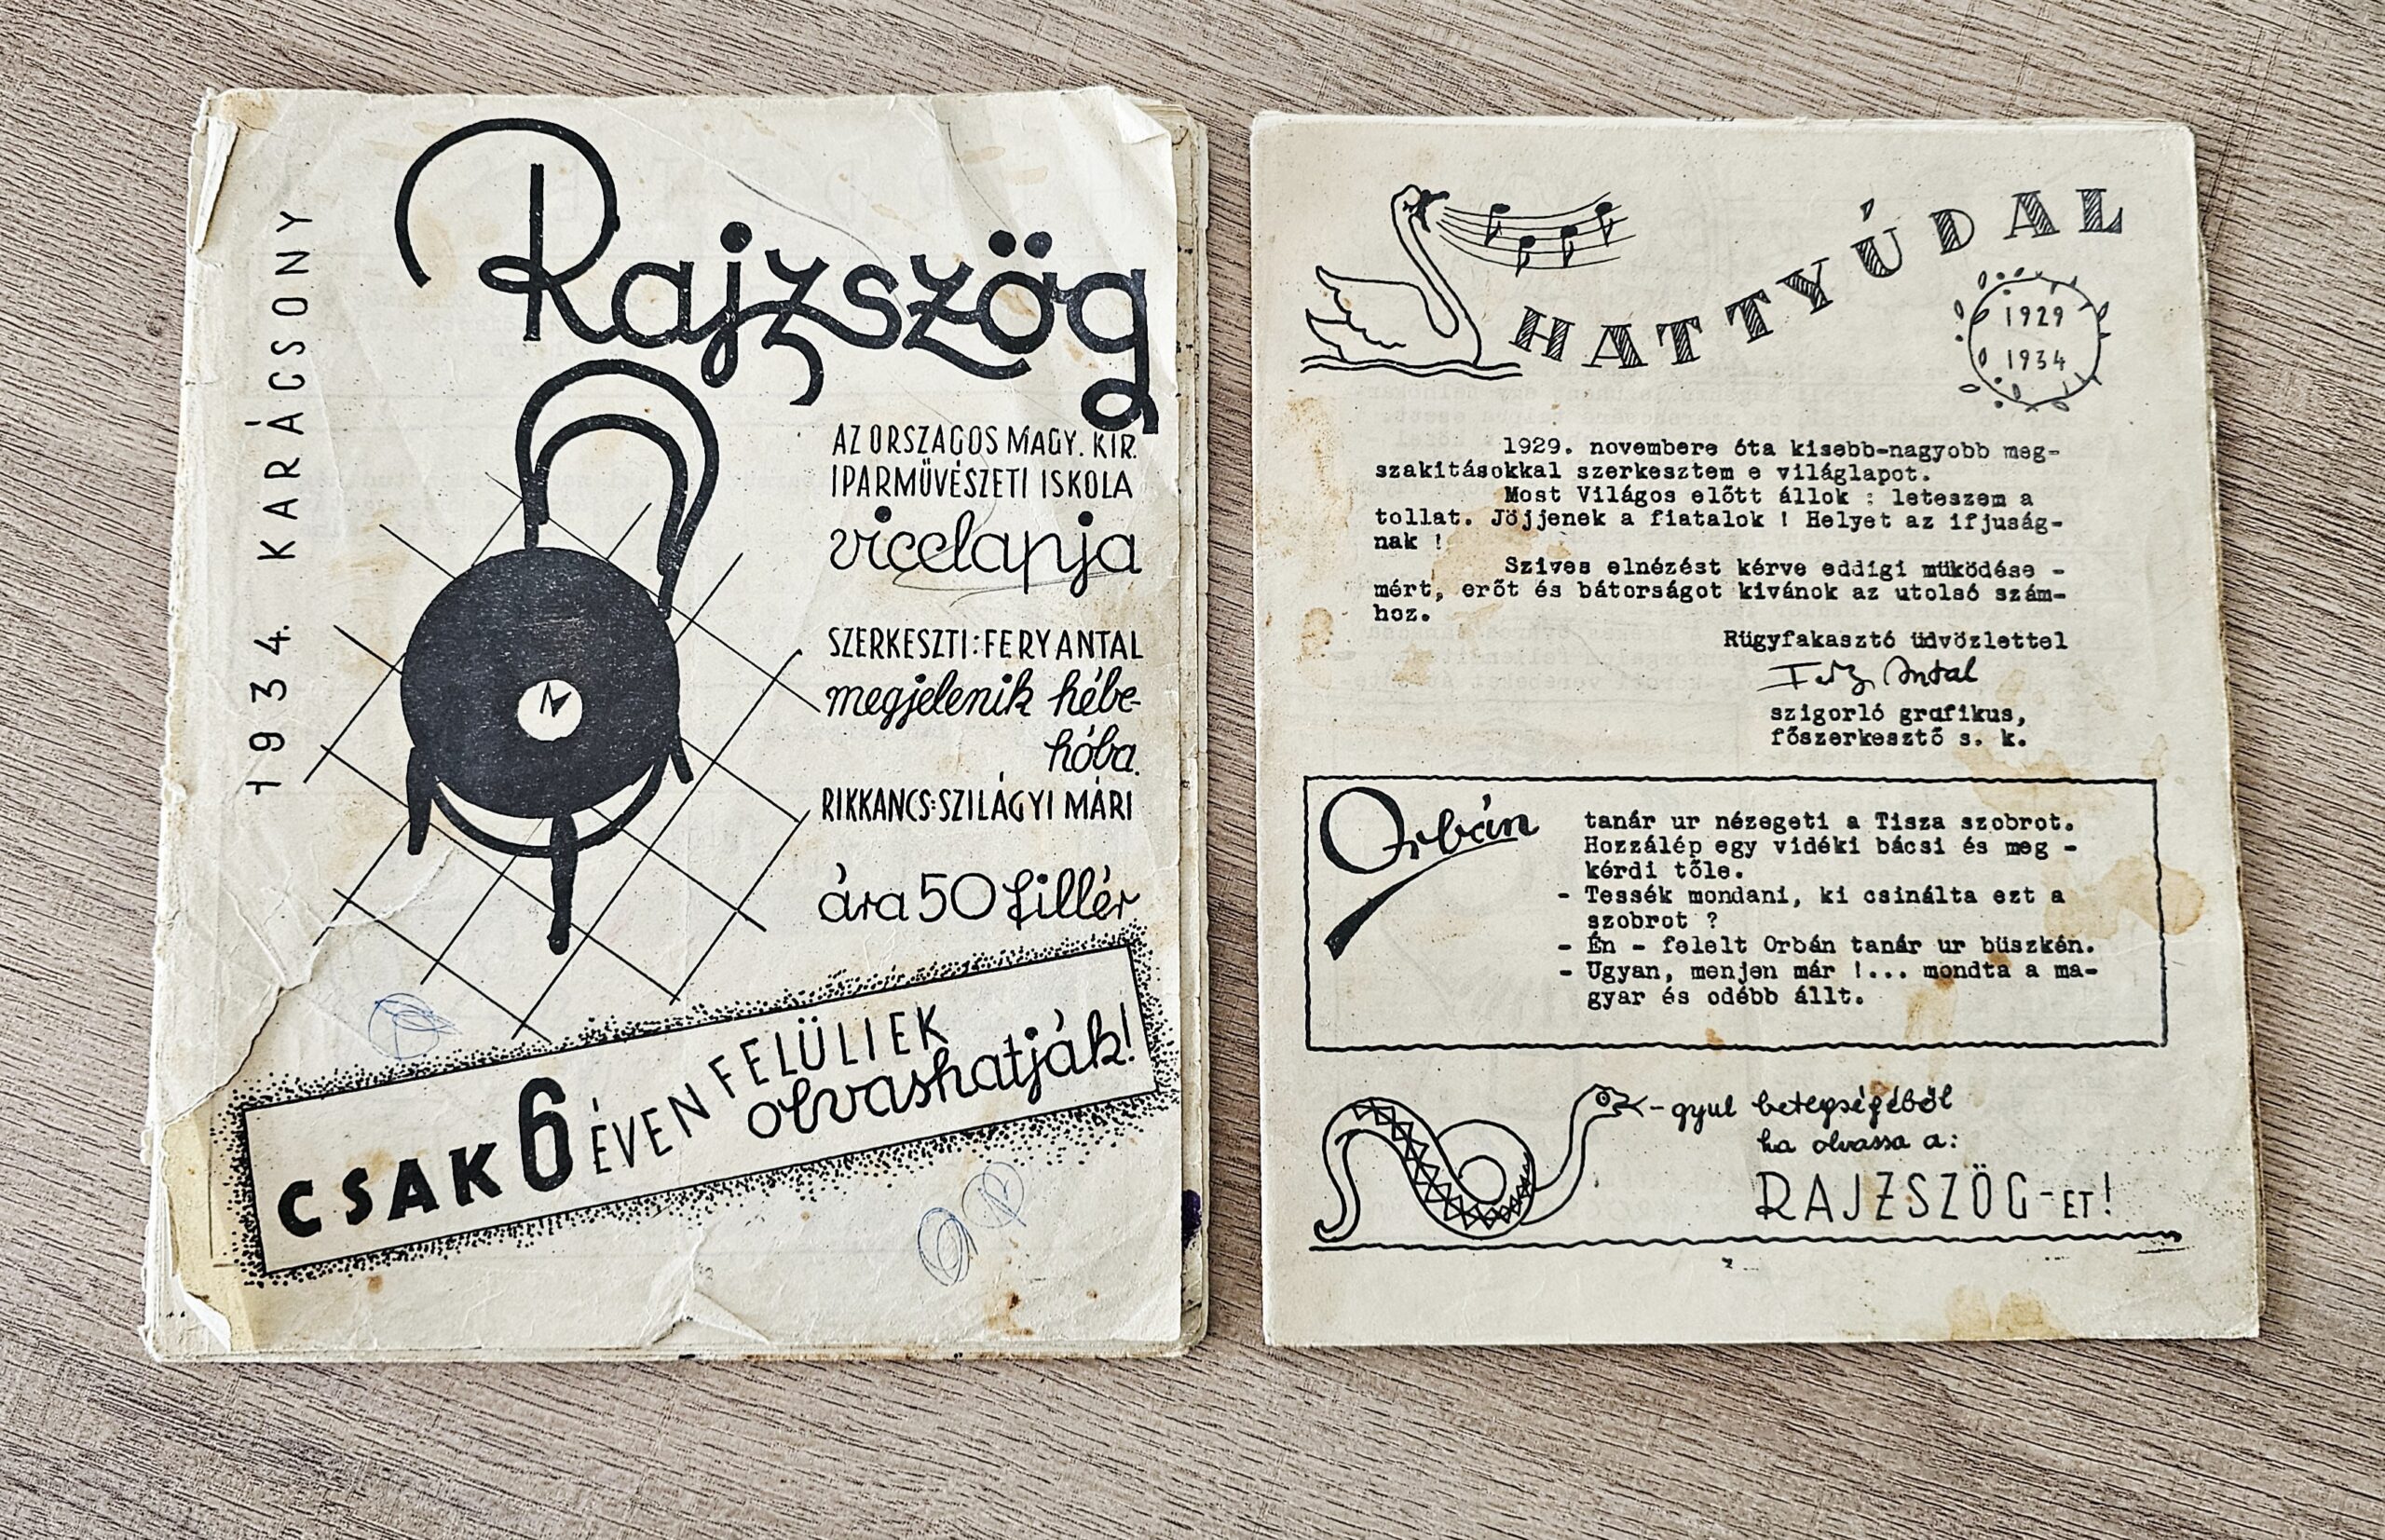 1934. KARÁCSONY
Rajzszög
AZ ORSZÁGOS MAGY. KIR.
IPARMŰVÉSZETI ISKOLA
vicclapja
SZERKESZTI: FERY ANTAL
megjelenik hébe-
hóba.
RIKKANCS: SZILÁGYI MÁRI
ára 50 fillér
CSAK 6 ÉVEN FELÜLIEK
olvashatják!
HATTYÚDAL
1929
1934
1929. novembere óta kisebb-nagyobb meg-
szakitásokkal szerkesztem e világlapot.
Most Világos előtt állok : leteszem a
tollat. Jöjjenek a fiatalok ! Helyet az ifjuság-
nak !
Szives elnézést kérve eddigi müködése -
mért, erőt és bátorságot kivánok az utolsó szám-
hoz.
Rügyfakasztó üdvözlettel
Fery Antal
szigorló grafikus,
főszerkesztő s. k.
Orbán tanár ur nézegeti a Tisza szobrot.
Hozzálép egy vidéki bácsi és meg -
kérdi tőle.
- Tessék mondani, ki csinálta ezt a
szobrot ?
- Én - felelt Orbán tanár ur büszkén.
- Ugyan, menjen már !... mondta a ma-
gyar és odébb állt.
-gyul betegségéből
ha olvassa a:
RAJZSZÖG-ET!